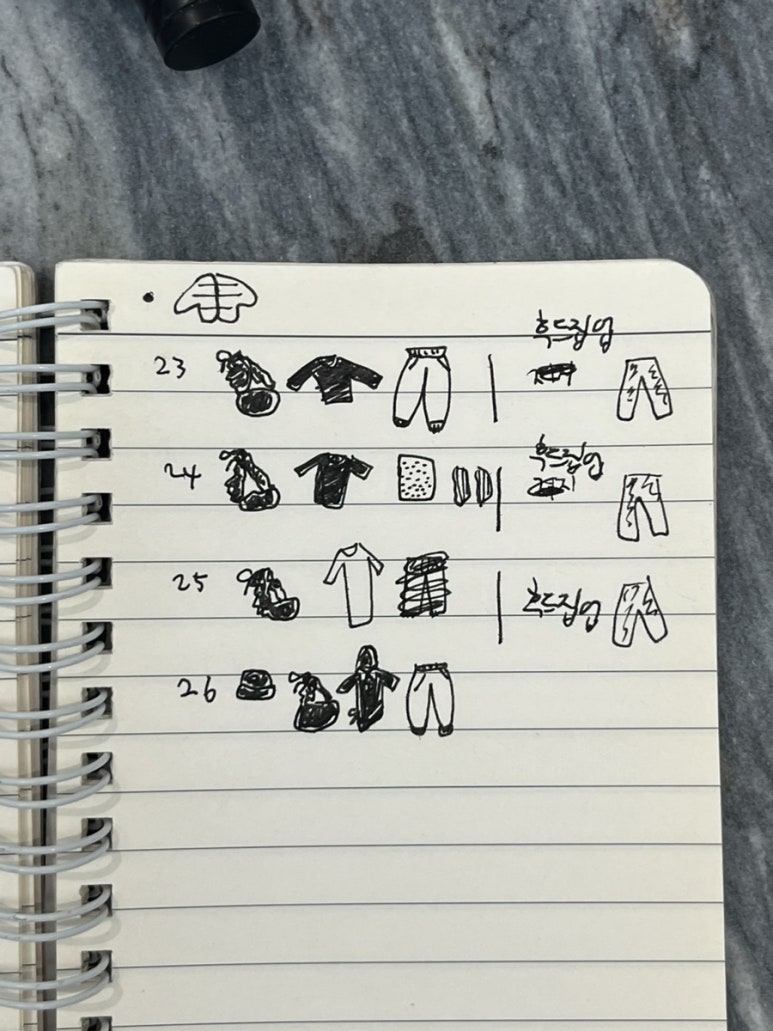 후드집업
23
후드집업
24
25 후드집업
26